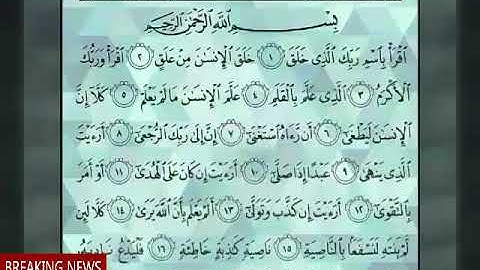 بِسْمِ ٱللَّهِ ٱلرَّحْمَٰنِ ٱلرَّحِيمِ
ٱقْرَأْ بِٱسْمِ رَبِّكَ ٱلَّذِى خَلَقَ ١ خَلَقَ ٱلْإِنسَٰنَ مِنْ عَلَقٍ ٢ ٱقْرَأْ وَرَبُّكَ
ٱلْأَكْرَمُ ٣ ٱلَّذِى عَلَّمَ بِٱلْقَلَمِ ٤ عَلَّمَ ٱلْإِنسَٰنَ مَا لَمْ يَعْلَمْ ٥ كَلَّآ إِنَّ
ٱلْإِنسَٰنَ لَيَطْغَىٰٓ ٦ أَن رَّءَاهُ ٱسْتَغْنَىٰٓ ٧ إِنَّ إِلَىٰ رَبِّكَ ٱلرُّجْعَىٰٓ ٨ أَرَءَيْتَ
ٱلَّذِى يَنْهَىٰ ٩ عَبْدًا إِذَا صَلَّىٰٓ ١٠ أَرَءَيْتَ إِن كَانَ عَلَى ٱلْهُدَىٰٓ ١١ أَوْ أَمَرَ
بِٱلتَّقْوَىٰٓ ١٢ أَرَءَيْتَ إِن كَذَّبَ وَتَوَلَّىٰٓ ١٣ أَلَمْ يَعْلَم بِأَنَّ ٱللَّهَ يَرَىٰ ١٤ كَلَّا لَئِن
لَّمْ يَنتَهِ لَنَسْفَعًۢا بِٱلنَّاصِيَةِ ١٥ نَاصِيَةٍ كَٰذِبَةٍ خَاطِئَةٍ ١٦ فَلْيَدْعُ نَادِيَهُۥ
BREAKING NEWS